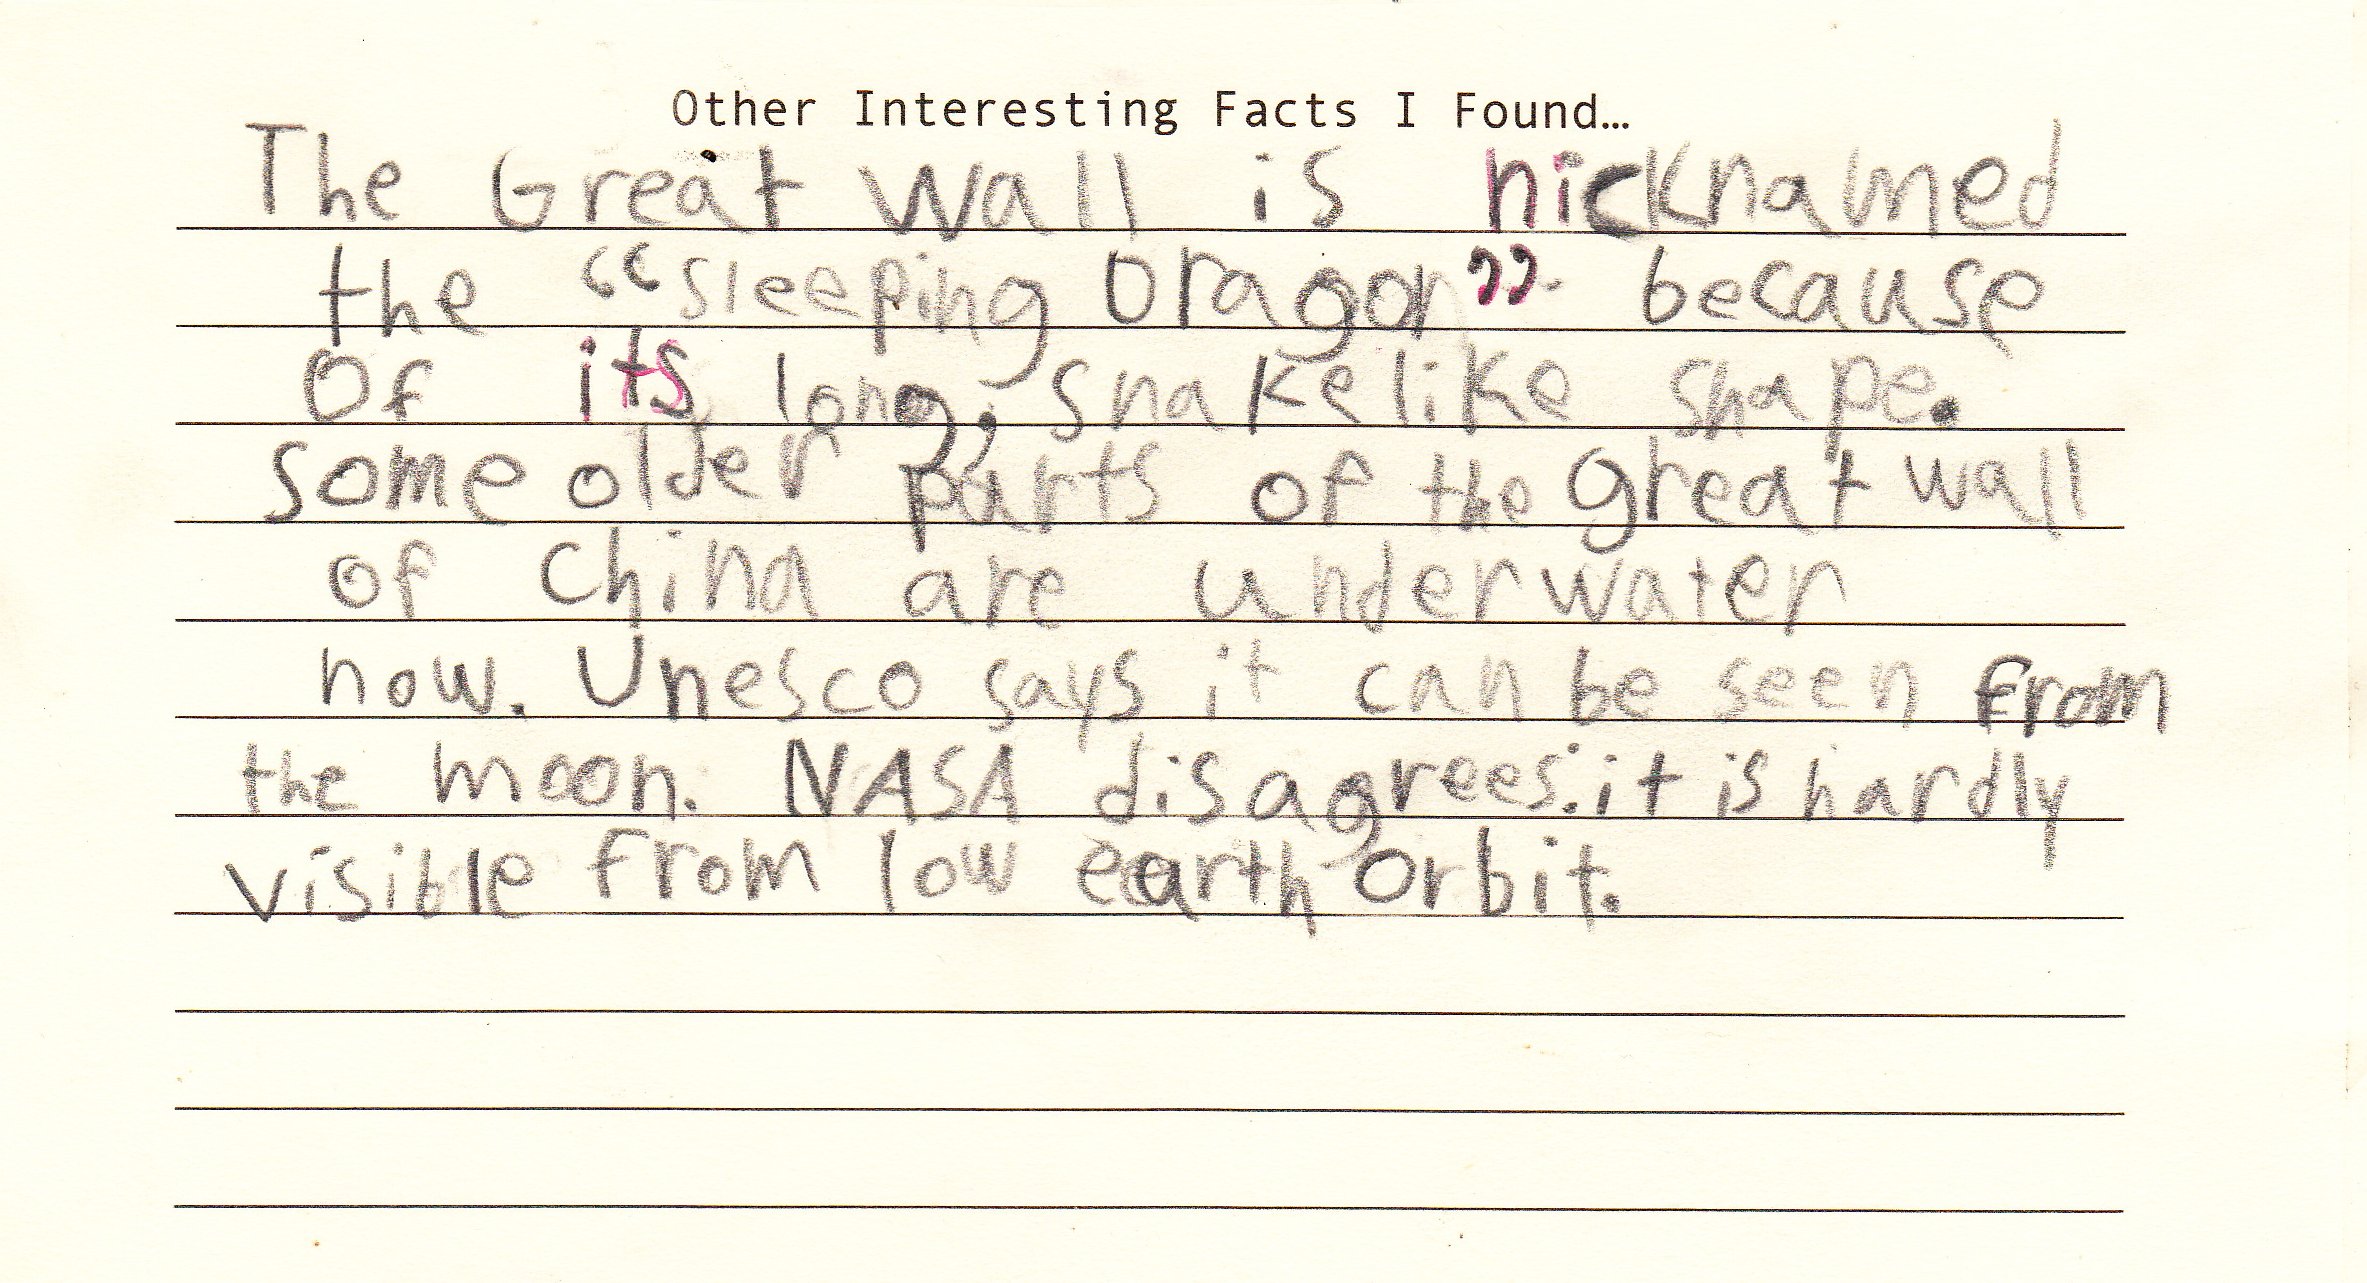 Other Interesting Facts I Found…
The Great Wall is nicknamed
the “sleeping Dragon” because
Of its long, snakelike shape.
some older parts of the great wall
of China are underwater
now. Unesco says it can be seen from
the moon. NASA disagrees: it is hardly
visible from low earth orbit.